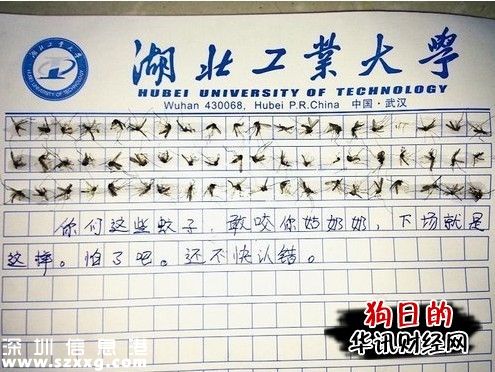 湖北工業大學
HUBEI UNIVERSITY OF TECHNOLOGY
Wuhan 430068, Hubei P.R.China 中国·武汉
你们这些蚊子，敢咬你姑奶奶，下场就是
这样。怕了吧。还不快认错。
狗日的
华讯财经网
深圳信息港
www.szxxg.com